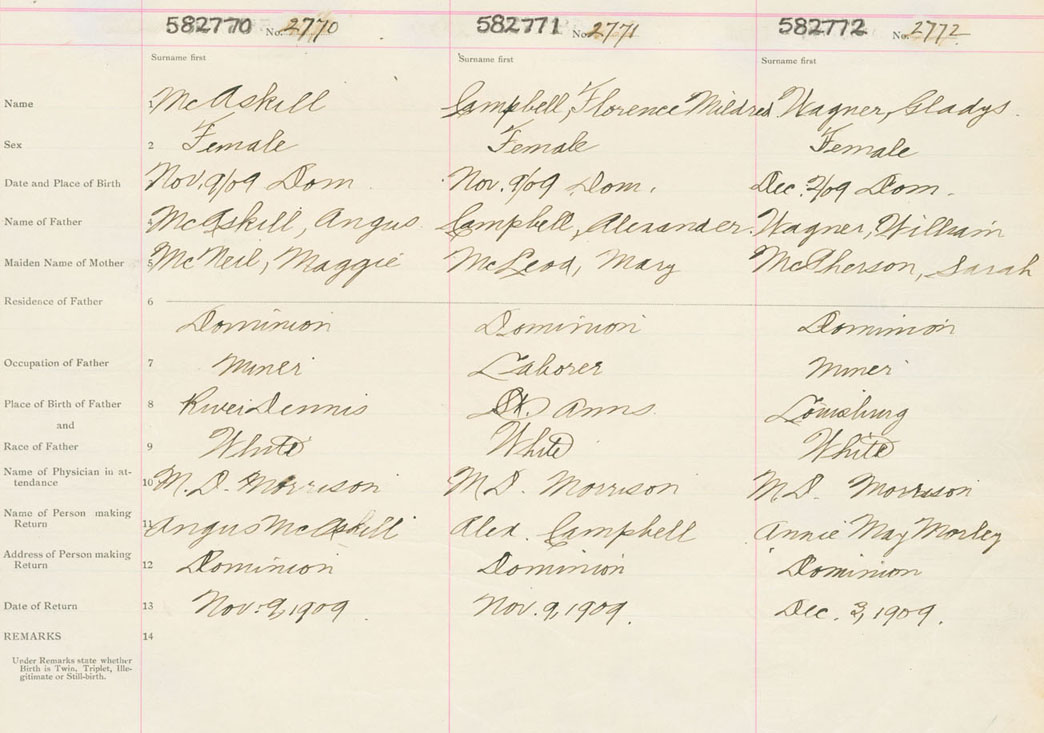 582770 No. 2770 582771 No. 2771 582772 No. 2772
Surname first Surname first Surname first
Name 1 McAskill Campbell, Florence Mildred Wagner, Gladys.
Sex 2 Female Female Female
Date and Place of Birth Nov. 9/09 Dom. Nov. 9/09 Dom. Dec. 2/09 Dom.
Name of Father 4 McAskill, Angus. Campbell, Alexander. Wagner, William
Maiden Name of Mother 5 McNeil, Maggie McLeod, Mary McPherson, Sarah
Residence of Father 6
Dominion Dominion Dominion
Occupation of Father 7 Miner Laborer Miner
Place of Birth of Father 8 River Dennis St. Anns. Louisburg
and
Race of Father 9 White White White
Name of Physician in at-
tendance 10 M.D. Morrison M.D. Morrison M.D. Morrison
Name of Person making
Return 11 Angus McAskill Alex. Campbell Annie May Morley
Address of Person making
Return 12 Dominion Dominion Dominion
Date of Return 13 Nov. 9, 1909. Nov. 9, 1909. Dec. 3, 1909.
REMARKS 14
Under Remarks state whether
Birth is Twin, Triplet, Ille-
gitimate or Still-birth.